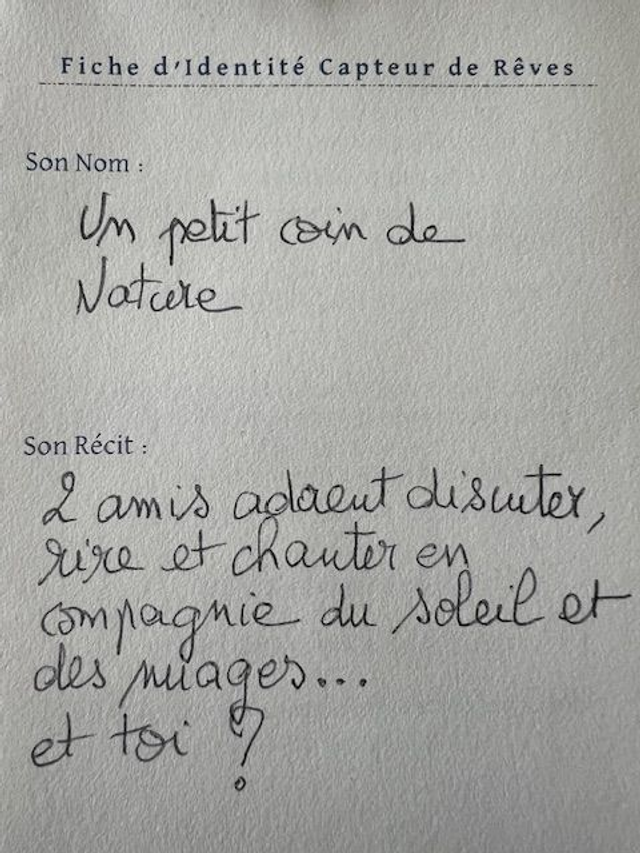 Fiche d'Identité Capteur de Rêves
Son Nom :
Un petit coin de
Nature
Son Récit :
2 amis adorent discuter,
rire et chanter en
compagnie du soleil et
des nuages...
et toi ?